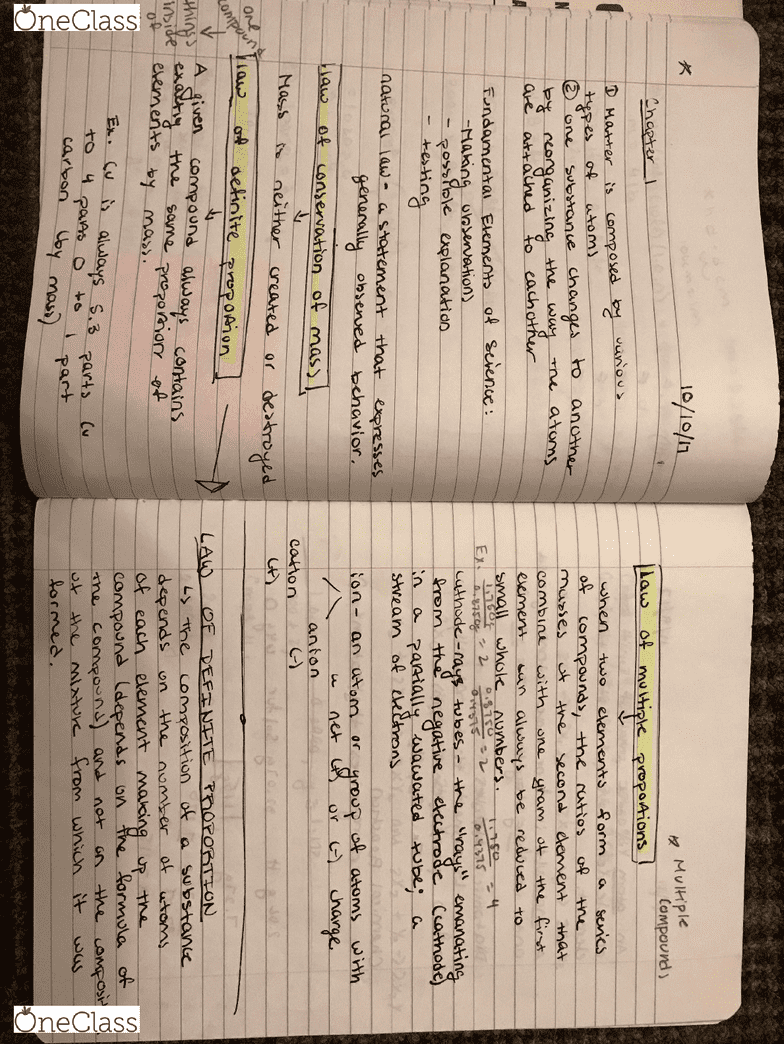 OneClass
10/10/17
*
Chapter 1
① Matter is composed by various
types of atoms
② one substance changes to another
by reorganizing the way the atoms
are attached to eachother
Fundamental Elements of science:
- Making observations
- possible explanation
- testing
natural law - a statement that expresses
generally observed behavior.
law of conservation of mass
↓
Mass is neither created or destroyed
one
compound
law of definite proportion
↓
things
inside
of
A given compound always contains
exactly the same proportion of
elements by mass.
Ex. Cu is always 5.3 parts Cu
to 4 parts O to 1 part
carbon (by mass)
Multiple
Compounds
law of multiple proportions
↓
when two elements form a series
of compounds, the ratios of the
masses of the second element that
combine with one gram of the first
element can always be reduced to
small whole numbers.
Ex. 1.750g/0.8750g = 2 0.8750/0.4375 = 2 1.750/0.4375 = 4
Cathode-rays tubes - the "rays" emanating
from the negative electrode (cathode)
in a partially evacuated tube; a
stream of electrons
ion - an atom or group of atoms with
a net (+) or (-) charge
anion
cation (-)
(+)
LAW OF DEFINITE PROPORTION
↳ the composition of a substance
depends on the number of atoms
of each element making up the
compound (depends on the formula of
the compound) and not on the
of the mixture from which it was
formed.
OneClass